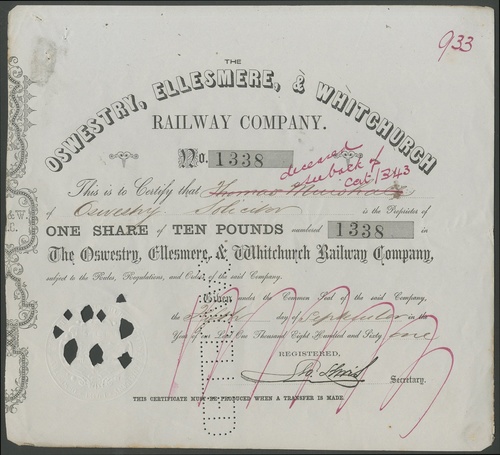 933
THE
OSWESTRY, ELLESMERE, & WHITCHURCH
RAILWAY COMPANY.
No. 1338
deceased
see back of
cert 1343
This is to Certify that Thomas Minshall
of Oswestry Solicitor is the Proprietor of
ONE SHARE of TEN POUNDS numbered 1338 in
The Oswestry, Ellesmere, & Whitchurch Railway Company,
subject to the Rules, Regulations, and Orders of the said Company.
Given under the Common Seal of the said Company,
the day of September in the
Year of our Lord One Thousand Eight Hundred and Sixty one
REGISTERED,
Secretary.
THIS CERTIFICATE MUST BE PRODUCED WHEN A TRANSFER IS MADE.